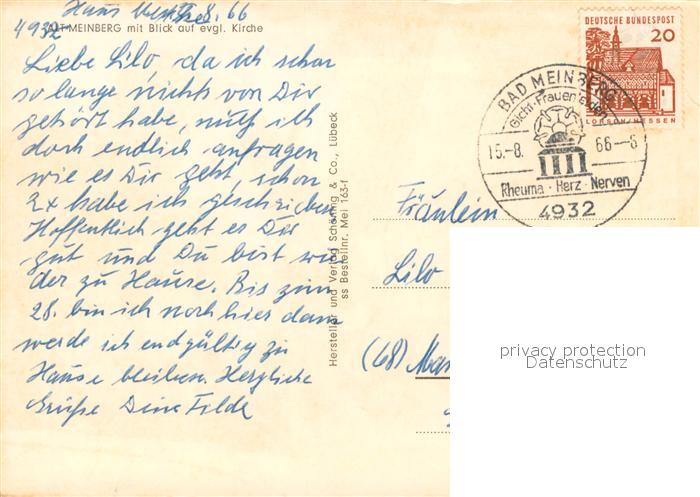 Haus 8. 66
4932
ALT-MEINBERG mit Blick auf evgl. Kirche
Liebe Lilo, da ich schon
so lange nichts von Dir
gehört habe, muß ich
doch endlich anfragen
wie es Dir geht, schon
2x habe ich geschrieben
Hoffentlich geht es Dir
gut und Du bist wie
der zu Hause. Bis zum
28. bin ich noch hier dann
werde ich endgültig zu
Hause bleiben. Herzliche
Grüße Deine Tilde
Hersteller und Verlag Schöning & Co., Lübeck
ss Bestellnr. Mei 163-f
DEUTSCHE BUNDESPOST
20
LORSCH/HESSEN
BAD MEINBERG
Gicht-Frauenleiden
15.-8. 66-6
Rheuma · Herz · Nerven
4932
Fräulein
Lilo
(68) Man
privacy protection
Datenschutz